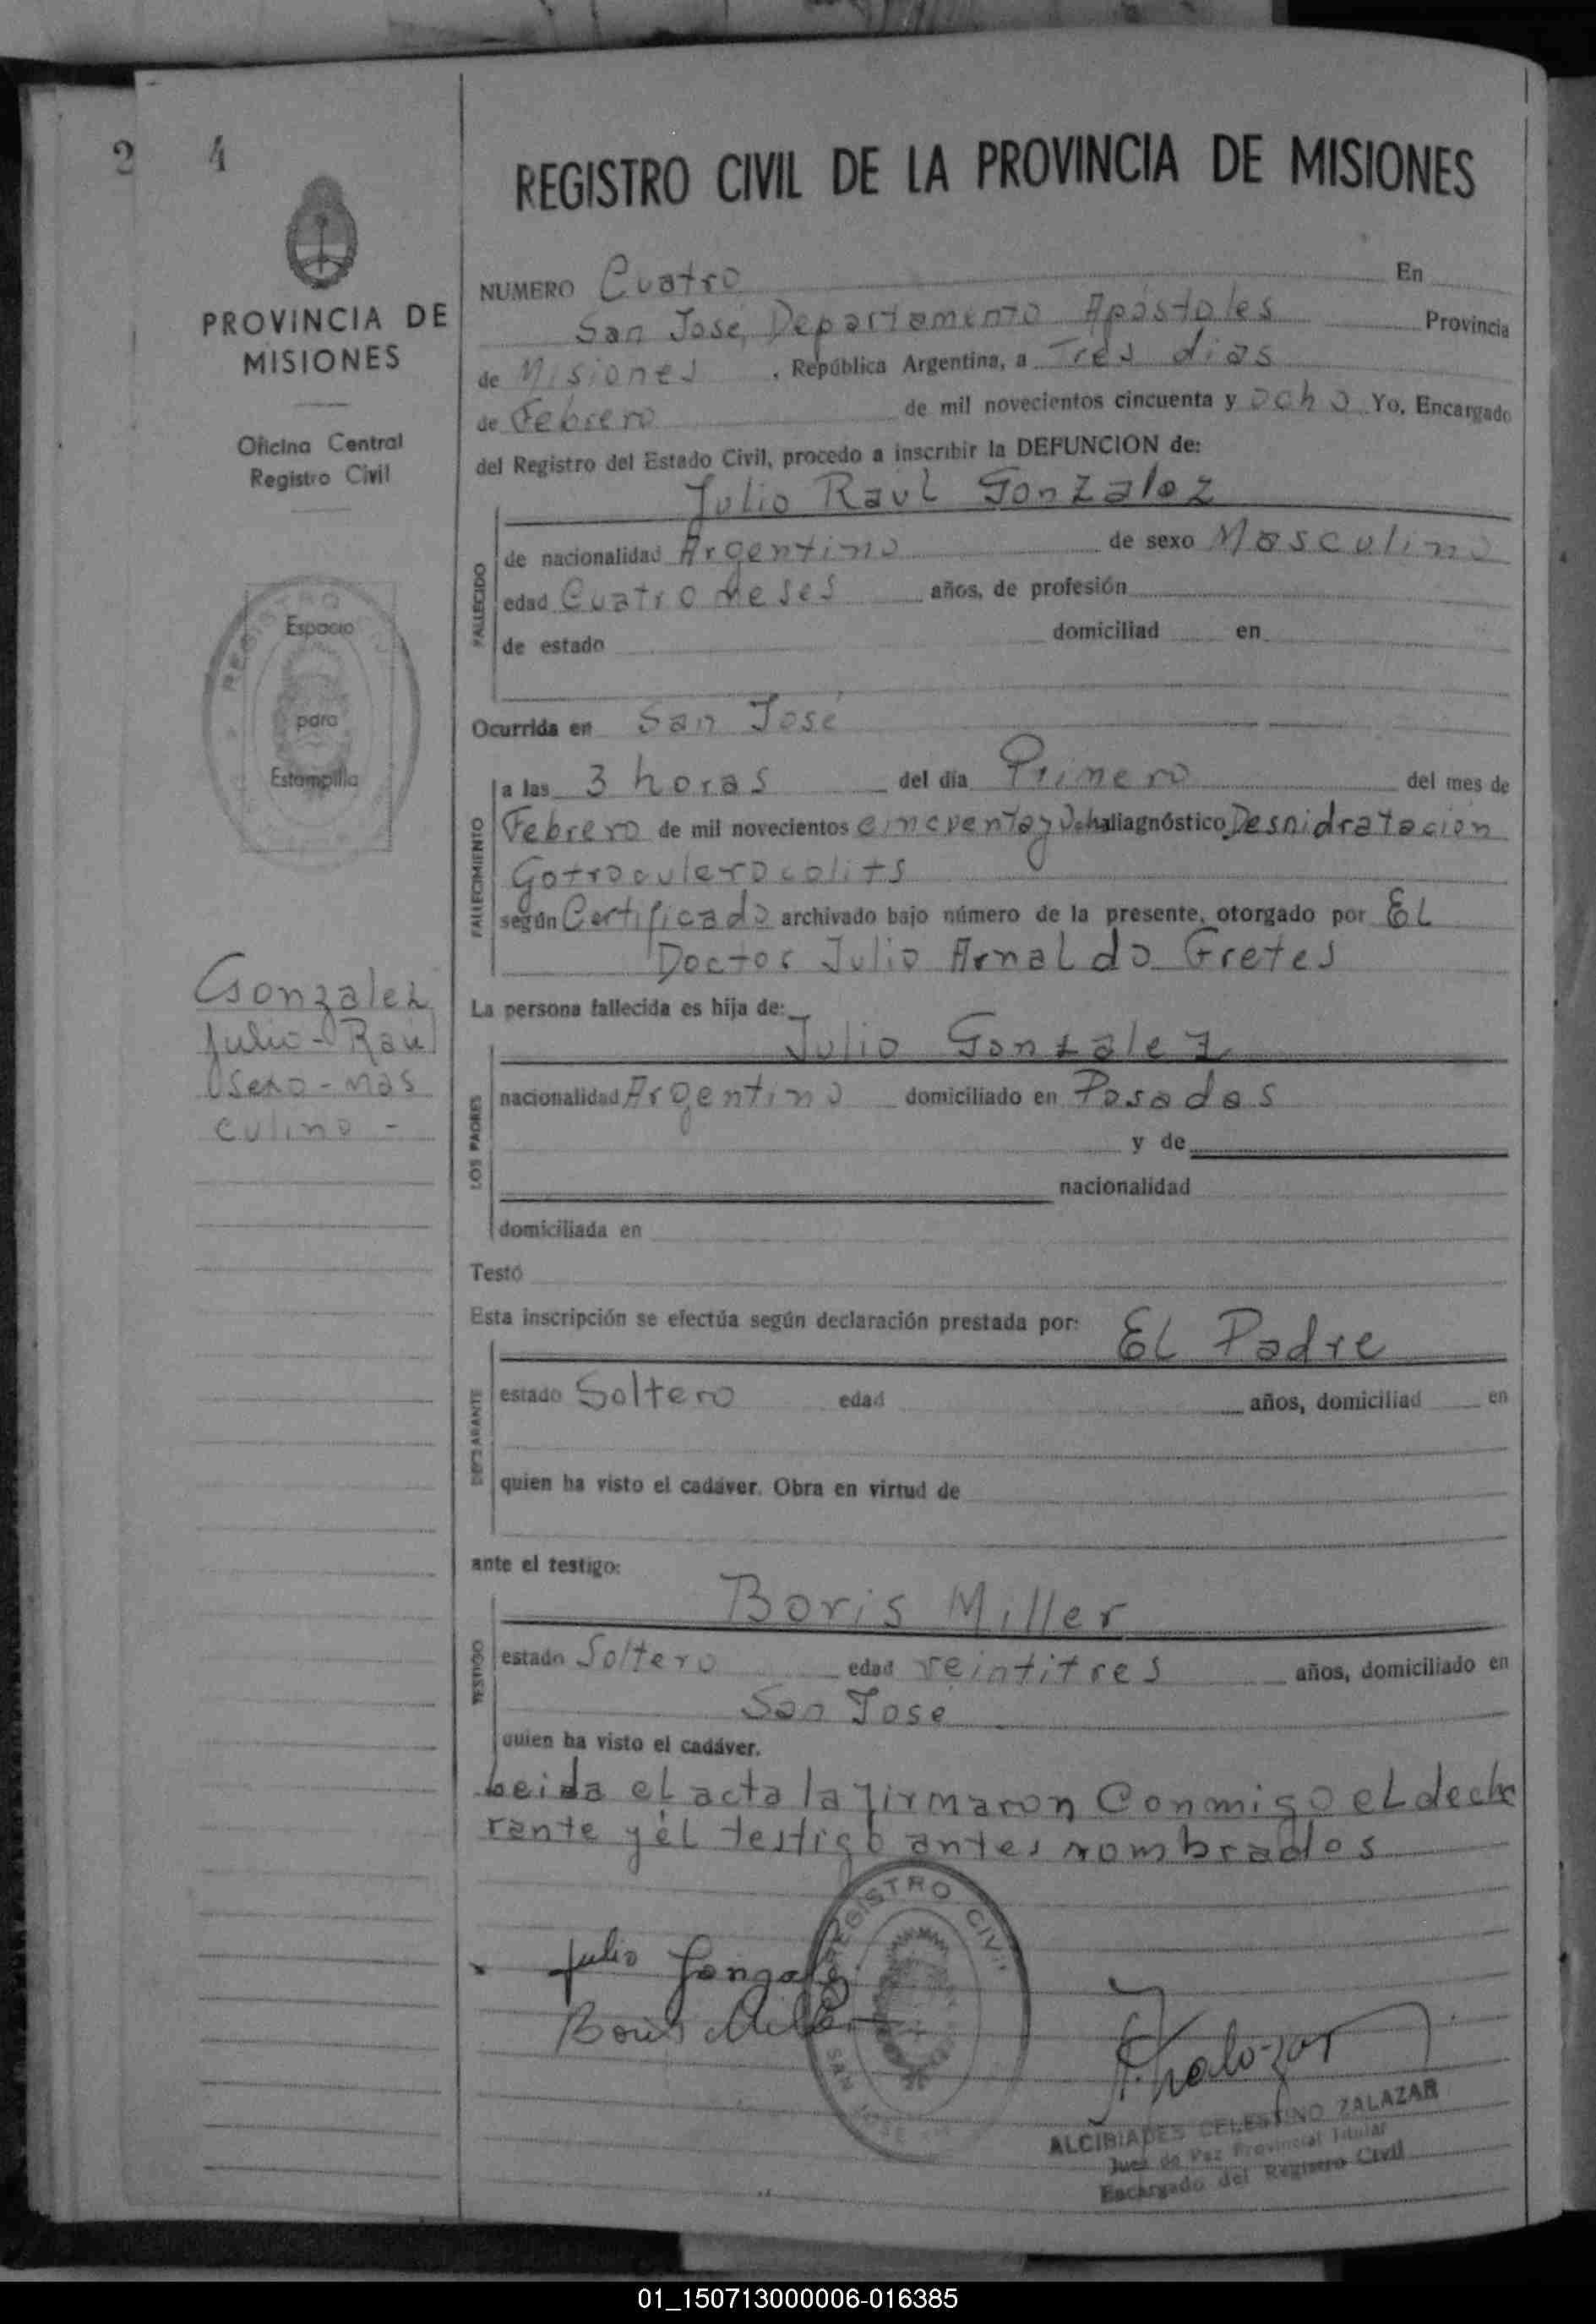 2 4
REGISTRO CIVIL DE LA PROVINCIA DE MISIONES
PROVINCIA DE
MISIONES
Oficina Central
Registro Civil
REGISTRO
Espacio
para
Estampilla
Gonzalez
Julio - Raul
Sexo - mas
culino -
NUMERO Cuatro En
San José, Departamento Apóstoles Provincia
de Misiones , República Argentina, a Tres dias
de Febrero de mil novecientos cincuenta y ocho Yo, Encargado
del Registro del Estado Civil, procedo a inscribir la DEFUNCION de:
Julio Raul Gonzalez
FALLECIDO
de nacionalidad Argentino de sexo Masculino
edad Cuatro meses años, de profesión
de estado domiciliad en
Ocurrida en San José
FALLECIMIENTO
a las 3 horas del día Primero del mes de
Febrero de mil novecientos cincuenta y Ocho diagnóstico Desnidratacion
según Certificado archivado bajo número de la presente, otorgado por EL
Doctor Julio Arnaldo Fretes
La persona fallecida es hija de:
Julio Gonzalez
LOS PADRES
nacionalidad Argentino domiciliado en Posadas
y de
nacionalidad
domiciliada en
Testó
Esta inscripción se efectúa según declaración prestada por:
EL Padre
DECLARANTE
estado Soltero edad años, domiciliad en
quien ha visto el cadáver. Obra en virtud de
ante el testigo:
Boris Miller
TESTIGO
estado Soltero edad veintitres años, domiciliado en
San José
quien ha visto el cadáver.
Leida el acta la firmaron Conmigo el decla
rante y el testigo antes nombrados
Julio Gonzalez
Boris Miller
REGISTRO CIVIL
SAN JOSE
ALCIBIADES CELESTINO ZALAZAR
Juez de Paz Provincial Titular
Encargado del Registro Civil
01_150713000006-016385